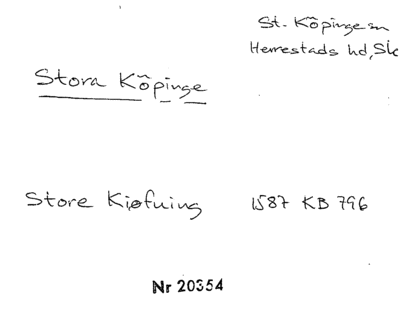 St. Köpinge sn
Herrestads hd, Sk
Stora Köpinge
Store Kiøfning 1587 KB 796
Nr 20354